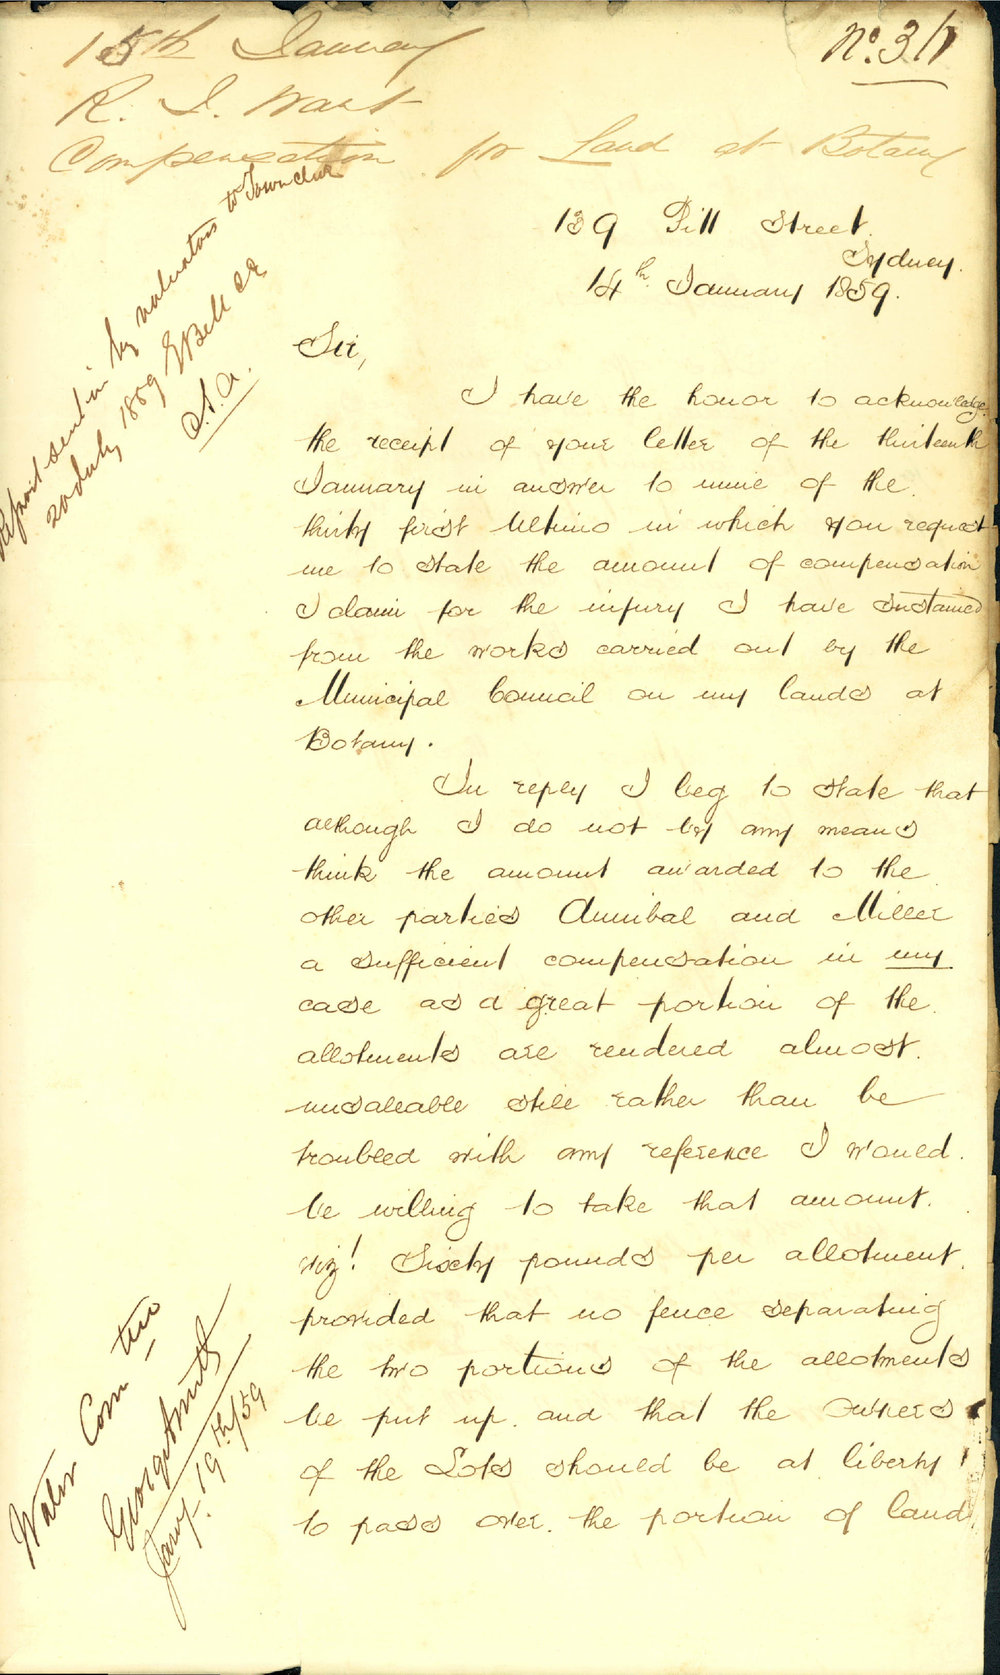 15th January
No. 31
R. I. Want
Compensation for Land at Botany
139 Pitt Street.
Sydney.
14th January 1859.
Report sent in by valuators to Town Clerk
20 July 1859 E Bell CE
Sir,
I have the honor to acknowledge
the receipt of your letter of the thirteenth
January in answer to mine of the
thirty first Ultimo in which you request
me to state the amount of compensation
I claim for the injury I have sustained
from the works carried out by the
Municipal Council on my lands at
Botany.
In reply I beg to state that
although I do not by any means
think the amount awarded to the
other parties Annibal and Miller
a sufficient compensation in my
case as a great portion of the
allotments are rendered almost
unsaleable still rather than be
troubled with any reference I would
be willing to take that amount.
viz! Sixty pounds per allotment.
provided that no fence separating
the two portions of the allotments
be put up. and that the Owners
of the Lots should be at liberty
to pass over the portion of land
Water Com tee
George Smith
Jany. 19th/59